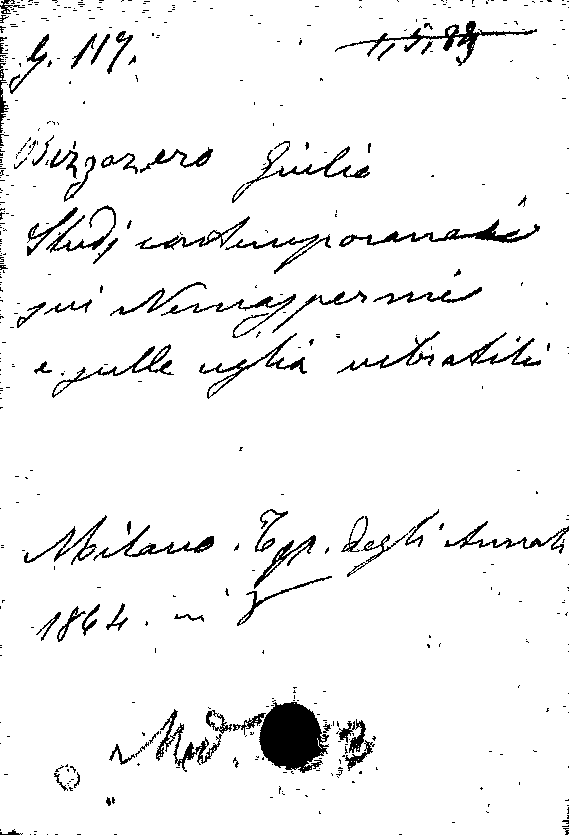 G. 117. 1,5,83
Bizzozero Giulio
Studj contemporanei
sui Nemaspermi
e sulle ciglia vibratili
Milano. Tip. degli Annali
1864. in 8
Med. B